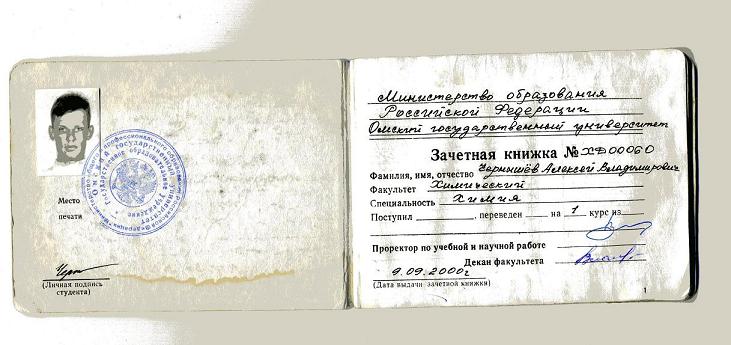 Место
печати
(Личная подпись
студента)
Министерство образования
Российской Федерации
Омский государственный университет
Зачетная книжка № ХФ00060
Фамилия, имя, отчество Чернышёв Алексей Владимирович
Факультет Химический
Специальность Химия
Поступил , переведен на 1 курс из
Проректор по учебной и научной работе
Декан факультета
9.09.2000г
(Дата выдачи зачетной книжки)
1